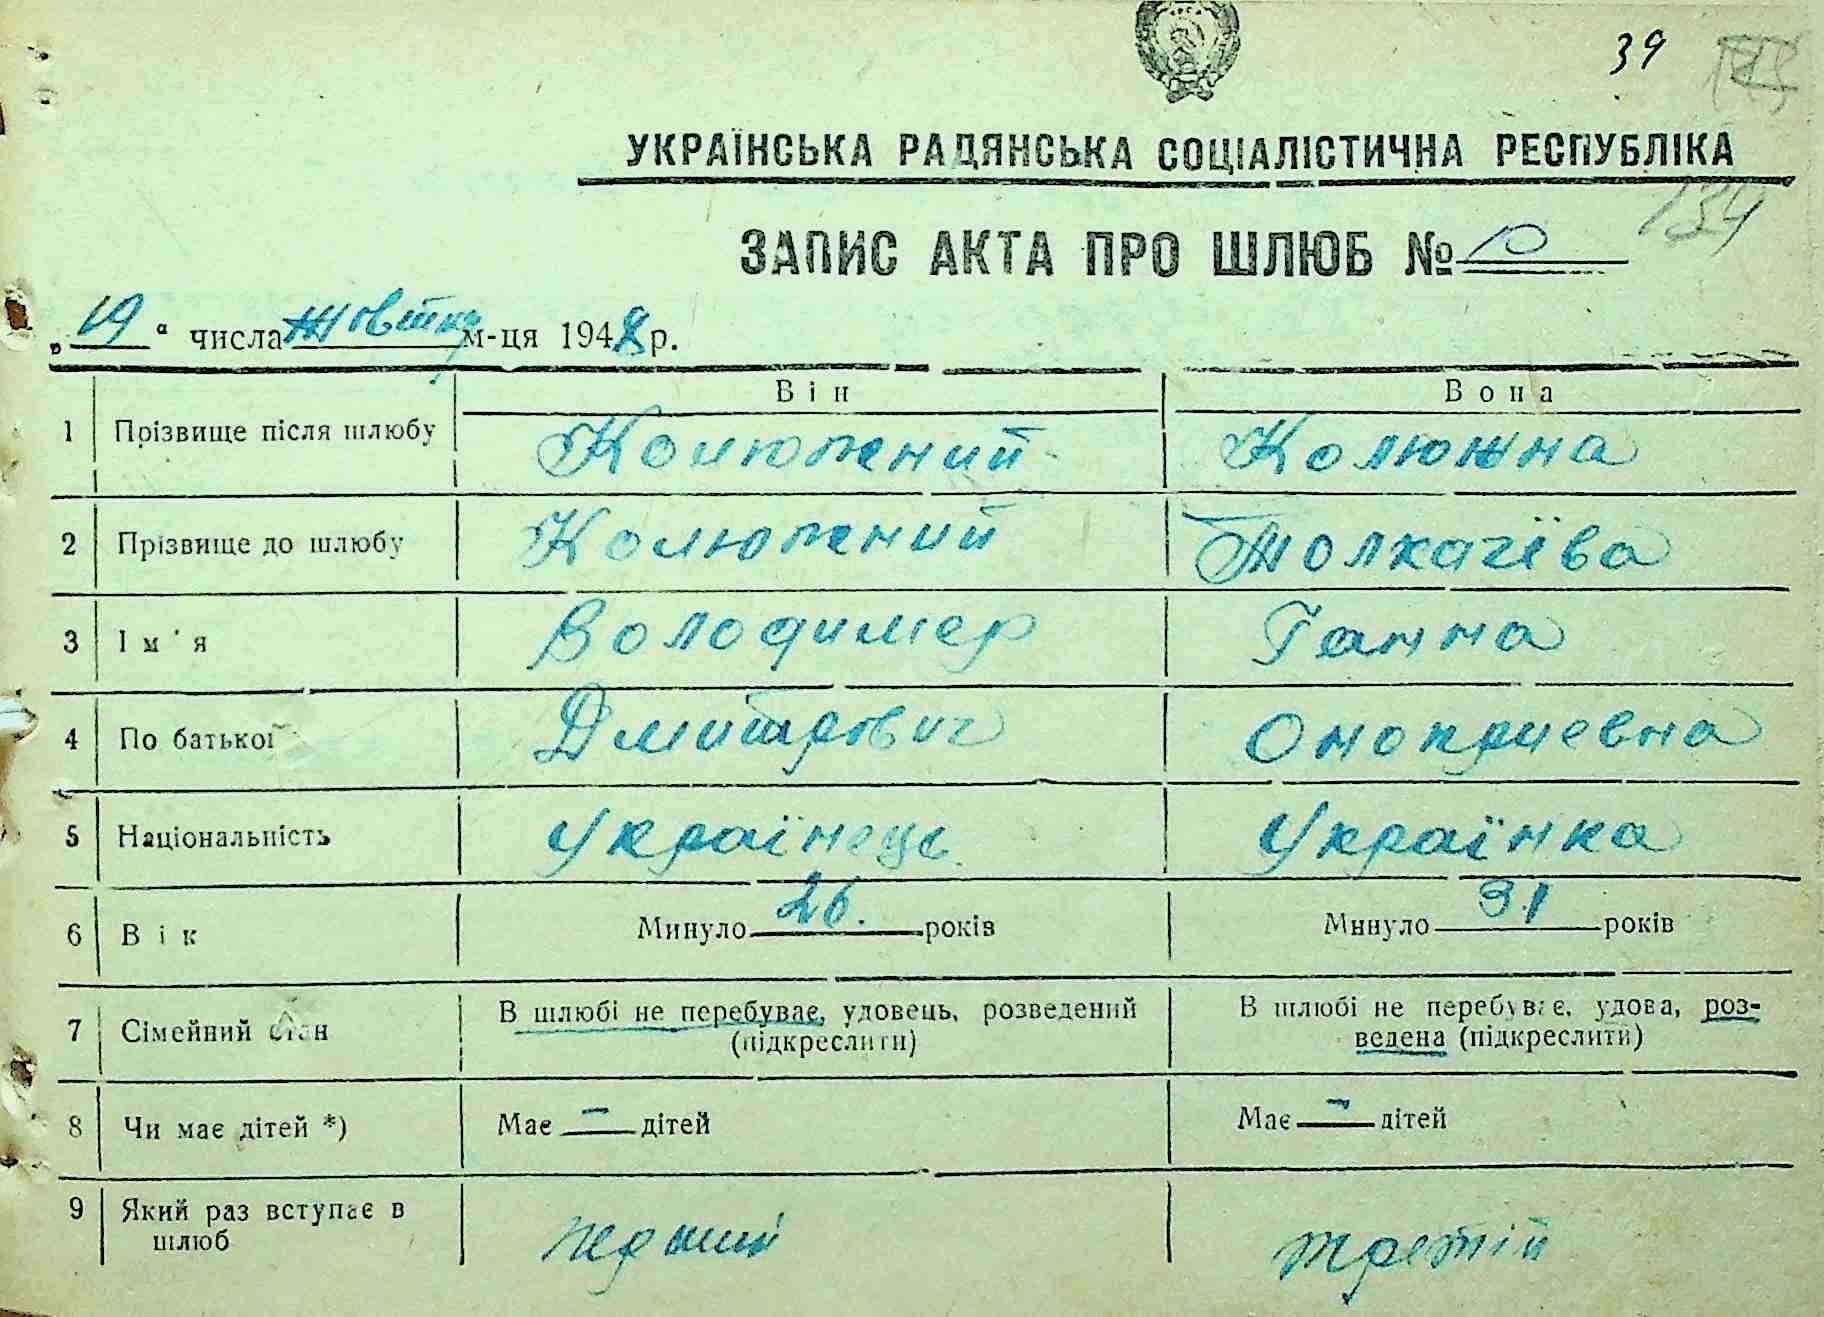 39
134
УКРАЇНСЬКА РАДЯНСЬКА СОЦІАЛІСТИЧНА РЕСПУБЛІКА
ЗАПИС АКТА ПРО ШЛЮБ № 10
„19“ числа Жовтня м-ця 1948 р.
Він Вона
1 Прізвище після шлюбу Колюжний Колюжна
2 Прізвище до шлюбу Колюжний Толкачёва
3 Ім'я Володимер Ганна
4 По батькові Дмитрович Оноприевна
5 Національність Українець Українка
6 Вік Минуло 26. років Минуло 31 років
7 Сімейний стан В шлюбі не перебуває, удовець, розведений В шлюбі не перебуває, удова, роз-
(підкреслити) ведена (підкреслити)
8 Чи має дітей *) Має – дітей Має – дітей
9 Який раз вступає в перший третій
шлюб